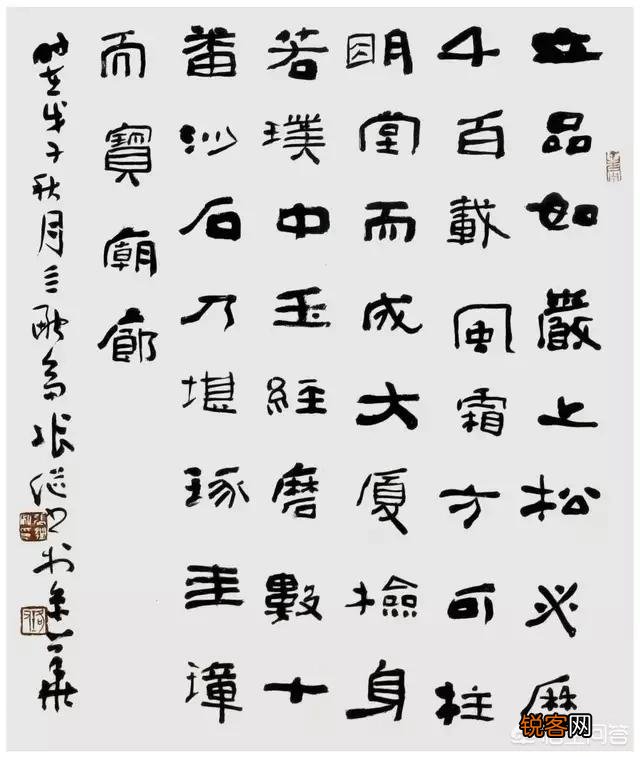 立品如嚴上松必歷
千百載風霜方可柱
明堂而成大厦檢身
若璞中玉經磨數十
番沙石乃堪琢圭璋
而寶廟廊
戊子秋月三融張继书於
锐客网
悟空问答